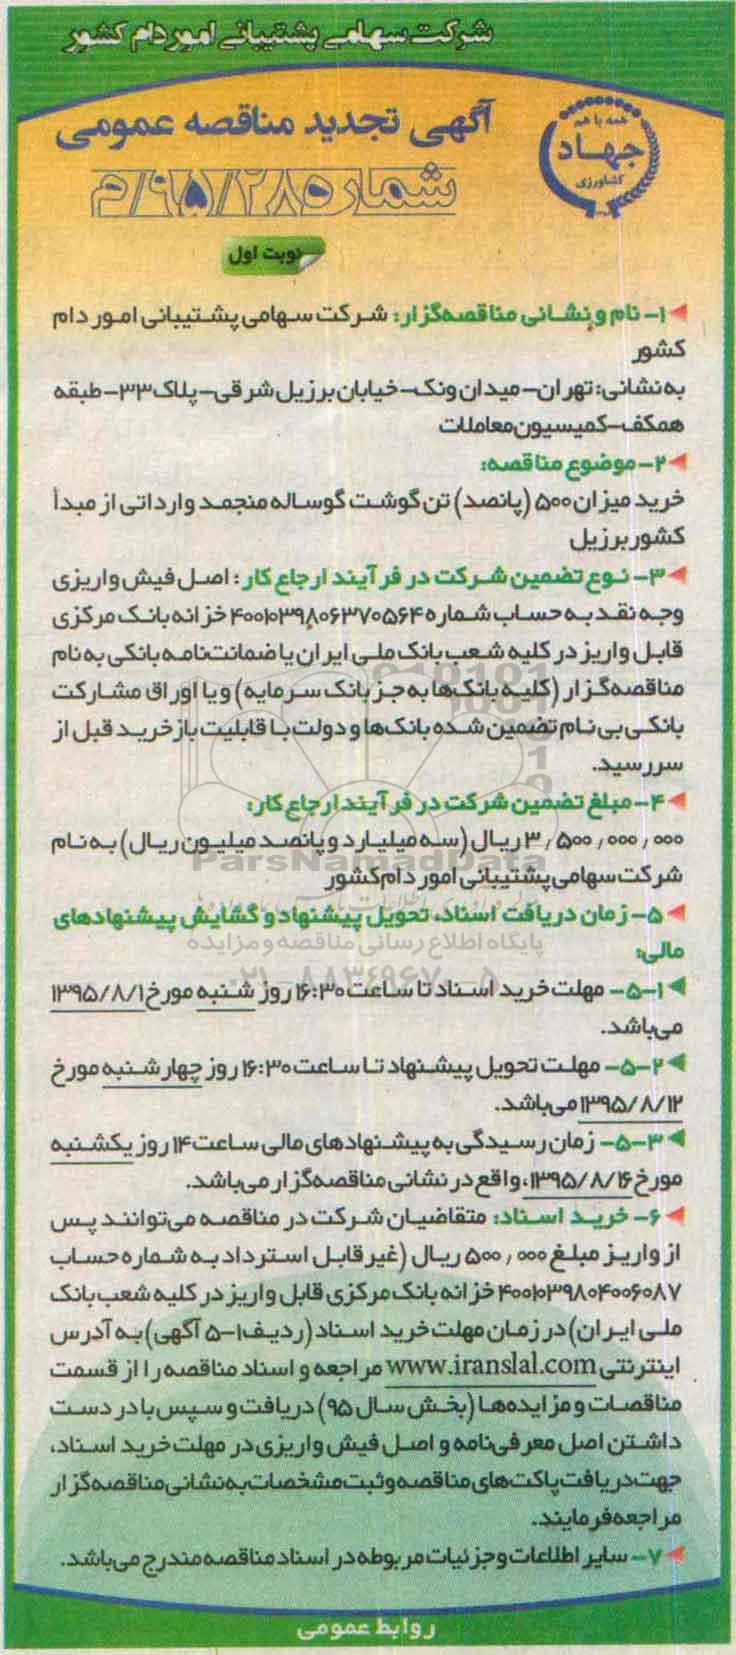 شرکت سهامی پشتیبانی امور دام کشور
آگهی تجدید مناقصه عمومی
همه با هم
جهاد
کشاورزی
شماره ۹۵/۲۸/م
نوبت اول
۱- نام و نشانی مناقصه‌گزار: شرکت سهامی پشتیبانی امور دام
کشور
به نشانی: تهران- میدان ونک- خیابان برزیل شرقی- پلاک ۳۳- طبقه
همکف- کمیسیون معاملات
۲- موضوع مناقصه:
خرید میزان ۵۰۰ (پانصد) تن گوشت گوساله منجمد وارداتی از مبدأ
کشور برزیل
۳- نوع تضمین شرکت در فرآیند ارجاع کار: اصل فیش واریزی
وجه نقد به حساب شماره ۴۰۰۱۰۳۹۸۰۶۳۷۰۵۶۴ خزانه بانک مرکزی
قابل واریز در کلیه شعب بانک ملی ایران یا ضمانت‌نامه بانکی به نام
مناقصه‌گزار (کلیه بانک‌ها به جز بانک سرمایه) و یا اوراق مشارکت
بانکی بی نام تضمین شده بانک‌ها و دولت با قابلیت بازخرید قبل از
سررسید.
۴- مبلغ تضمین شرکت در فرآیند ارجاع کار:
۳,۵۰۰,۰۰۰,۰۰۰ ریال (سه میلیارد و پانصد میلیون ریال) به نام
ParsNamadData
شرکت سهامی پشتیبانی امور دام کشور
۵- زمان دریافت اسناد، تحویل پیشنهاد و گشایش پیشنهادهای
پایگاه اطلاع رسانی مناقصه و مزایده
مالی:
۰۲۱-۸۸۳۴۹۶۷۰-۵
۵-۱- مهلت خرید اسناد تا ساعت ۱۶:۳۰ روز شنبه مورخ ۱۳۹۵/۸/۱
می‌باشد.
۵-۲- مهلت تحویل پیشنهاد تا ساعت ۱۶:۳۰ روز چهارشنبه مورخ
۱۳۹۵/۸/۱۲ می‌باشد.
۵-۳- زمان رسیدگی به پیشنهادهای مالی ساعت ۱۴ روز یکشنبه
مورخ ۱۳۹۵/۸/۱۶، واقع در نشانی مناقصه‌گزار می‌باشد.
۶- خرید اسناد: متقاضیان شرکت در مناقصه می‌توانند پس
از واریز مبلغ ۵۰۰,۰۰۰ ریال (غیر قابل استرداد به شماره حساب
۴۰۰۱۰۳۹۸۰۴۰۰۶۰۸۷ خزانه بانک مرکزی قابل واریز در کلیه شعب بانک
ملی ایران) در زمان مهلت خرید اسناد (ردیف ۱-۵ آگهی) به آدرس
اینترنتی www.iranslal.com مراجعه و اسناد مناقصه را از قسمت
مناقصات و مزایده‌ها (بخش سال ۹۵) دریافت و سپس با در دست
داشتن اصل معرفی‌نامه و اصل فیش واریزی در مهلت خرید اسناد،
جهت دریافت پاکت‌های مناقصه و ثبت مشخصات به نشانی مناقصه‌گزار
مراجعه فرمایند.
۷- سایر اطلاعات و جزئیات مربوطه در اسناد مناقصه مندرج می‌باشد.
روابط عمومی